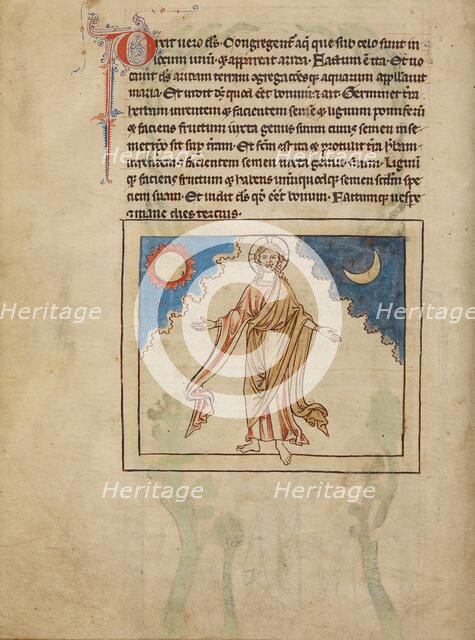 Dixit vero ds. Congregent aq̄ que sub celo sunt in
locum unū. ⁊ appareat arida. Factum ē ita. Et uo
cauit ds aridam terram agregacōesq̄ aquarum appellauit
maria. Et uidit ds quod cēt bonum ⁊ ait. Germinet tra
herbam uirentem ⁊ facientem semē ⁊ lignum pomiferū
⁊ faciens fructum iuxta genus suum cuius semen in se
metipso sit sup̄ terram. Et fcm̄ est ita ⁊ protulit tra herbam
uirentem ⁊ facientem semen iuxta genus suum. Lignūq̄
faciens fructum ⁊ habens unūquodque semen scdm spe
ciem suam. Et uidit ds qd̄ cēt bonum. Factumque uespe
⁊ mane dies tercius.
Heritage Heritage
Heritage Heritage
Heritage Heritage